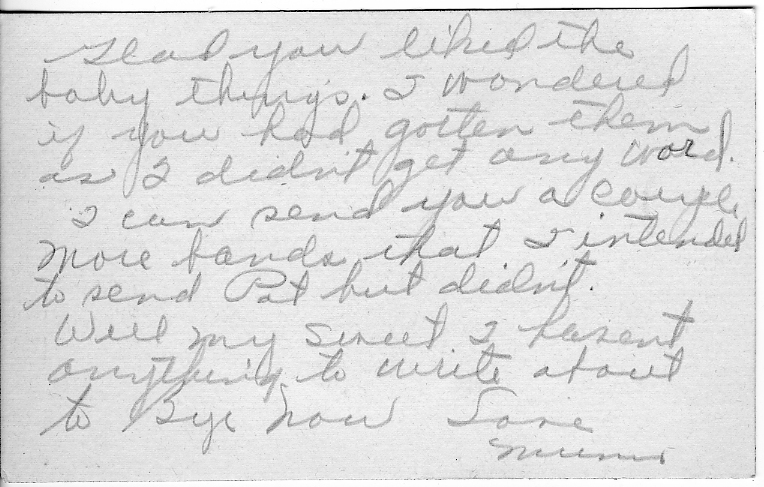 Glad you liked the
baby things. I wondered
if you had gotten them
as I didn't get any word.
I can send you a couple
more bands that I intended
to send Pat but didn't.
Well my sweet I havent
anything to write about
to Bye now Love
Mums